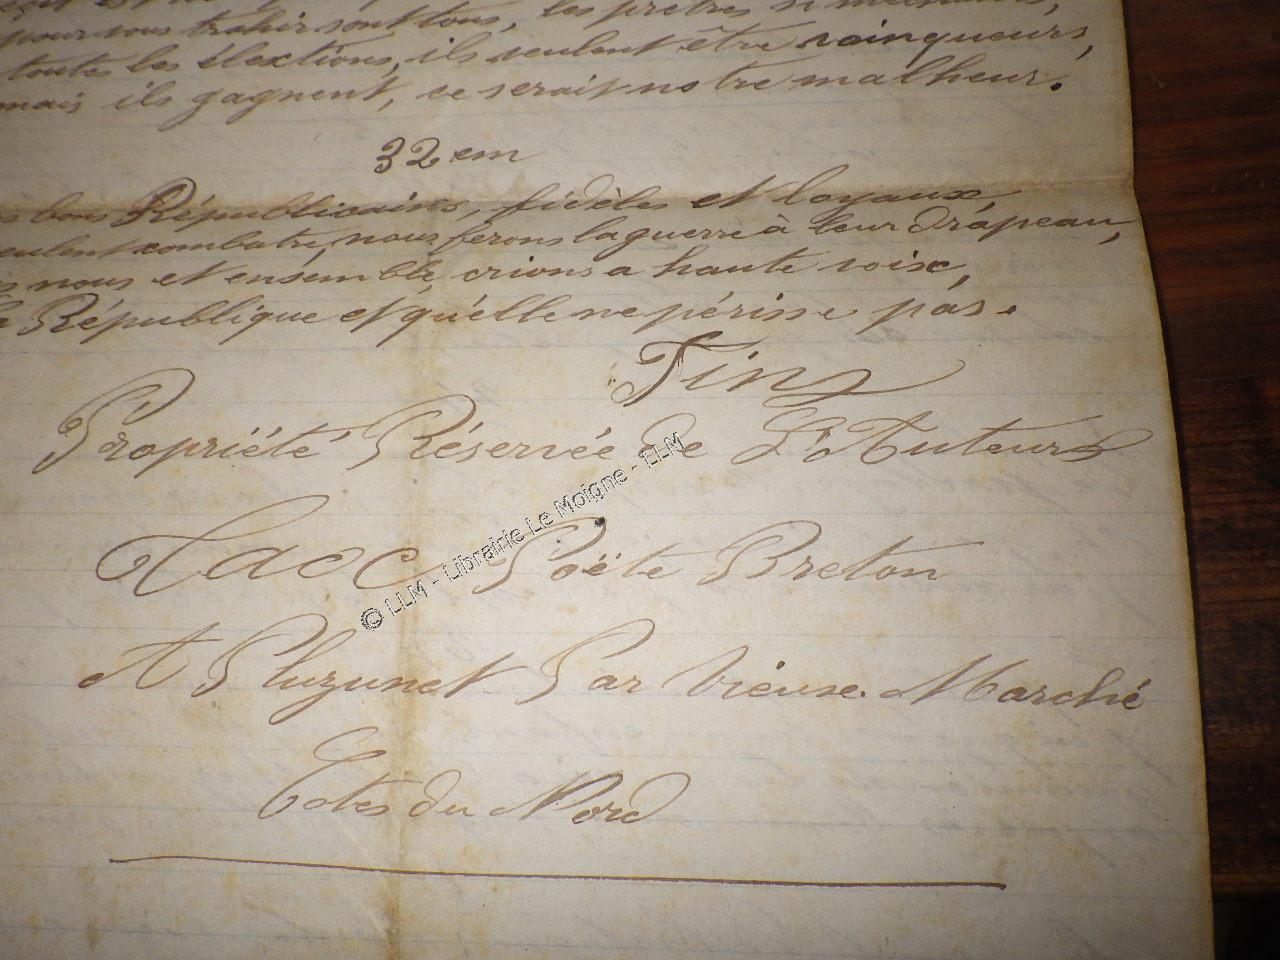 pour vous trahir sont tous, les prêtres si méchants,
toutes les élections, ils veulent être vainqueurs,
mais ils gagnent, ce serait notre malheur.
32 em
bons Républicains, fidèles et loyaux,
veulent combatre, nous ferons la guerre à leur drapeau,
nous et ensemble, crions a haute voix,
République et qu'elle ne périsse pas.
Fin
Propriété Réservée de L'Auteur
Poëte Breton
A Pluzunet Par Vieux Marché
Côtes du Nord
© LLM - Librairie Le Moigne - LLM